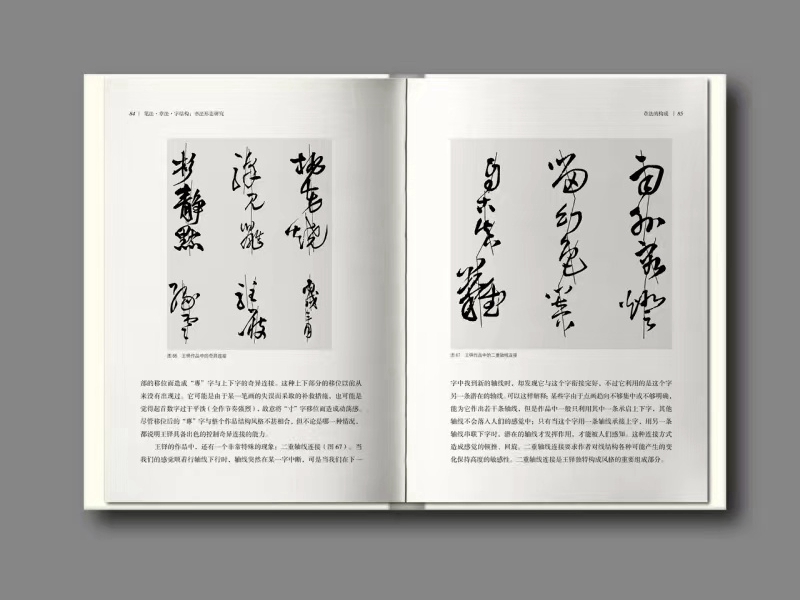 84 | 笔法·章法·字结构：书法形态研究
图66 王铎作品中的奇异连接
部的移位而造成“專”字与上下字的奇异连接。这种上下部分的移位以前从
来没有出现过。它可能是由于某一笔画的失误而采取的补救措施，也可能是
觉得起首数字过于平淡（全作节奏强烈），故意将“寸”字移位而造成动荡感。
尽管移位后的“專”字与整个作品结构风格不甚相合，但不论是哪一种情况，
都说明王铎具备出色的控制奇异连接的能力。
王铎的作品中，还有一个非常特殊的现象：二重轴线连接（图67）。当
我们的感觉顺着行轴线下行时，轴线突然在某一字中断，可是当我们在下一
章法的构成 | 85
图67 王铎作品中的二重轴线连接
字中找到新的轴线时，却发现它与这个字衔接完好，不过它利用的是这个字
另一条潜在的轴线。可以这样解释：某些字由于点画趋向不够集中或不够明确，
能为它作出若干条轴线，但是作品中一般只利用其中一条承启上下字，其他
轴线不会落入人们的感觉中；只有当这个字用一条轴线承接上字，用另一条
轴线串联下字时，潜在的轴线才发挥作用，才能被人们感知。这种连接方式
造成感觉的顿挫、回旋。二重轴线连接要求作者对线结构各种可能产生的变
化保持高度的敏感性。二重轴线连接是王铎独特构成风格的重要组成部分。